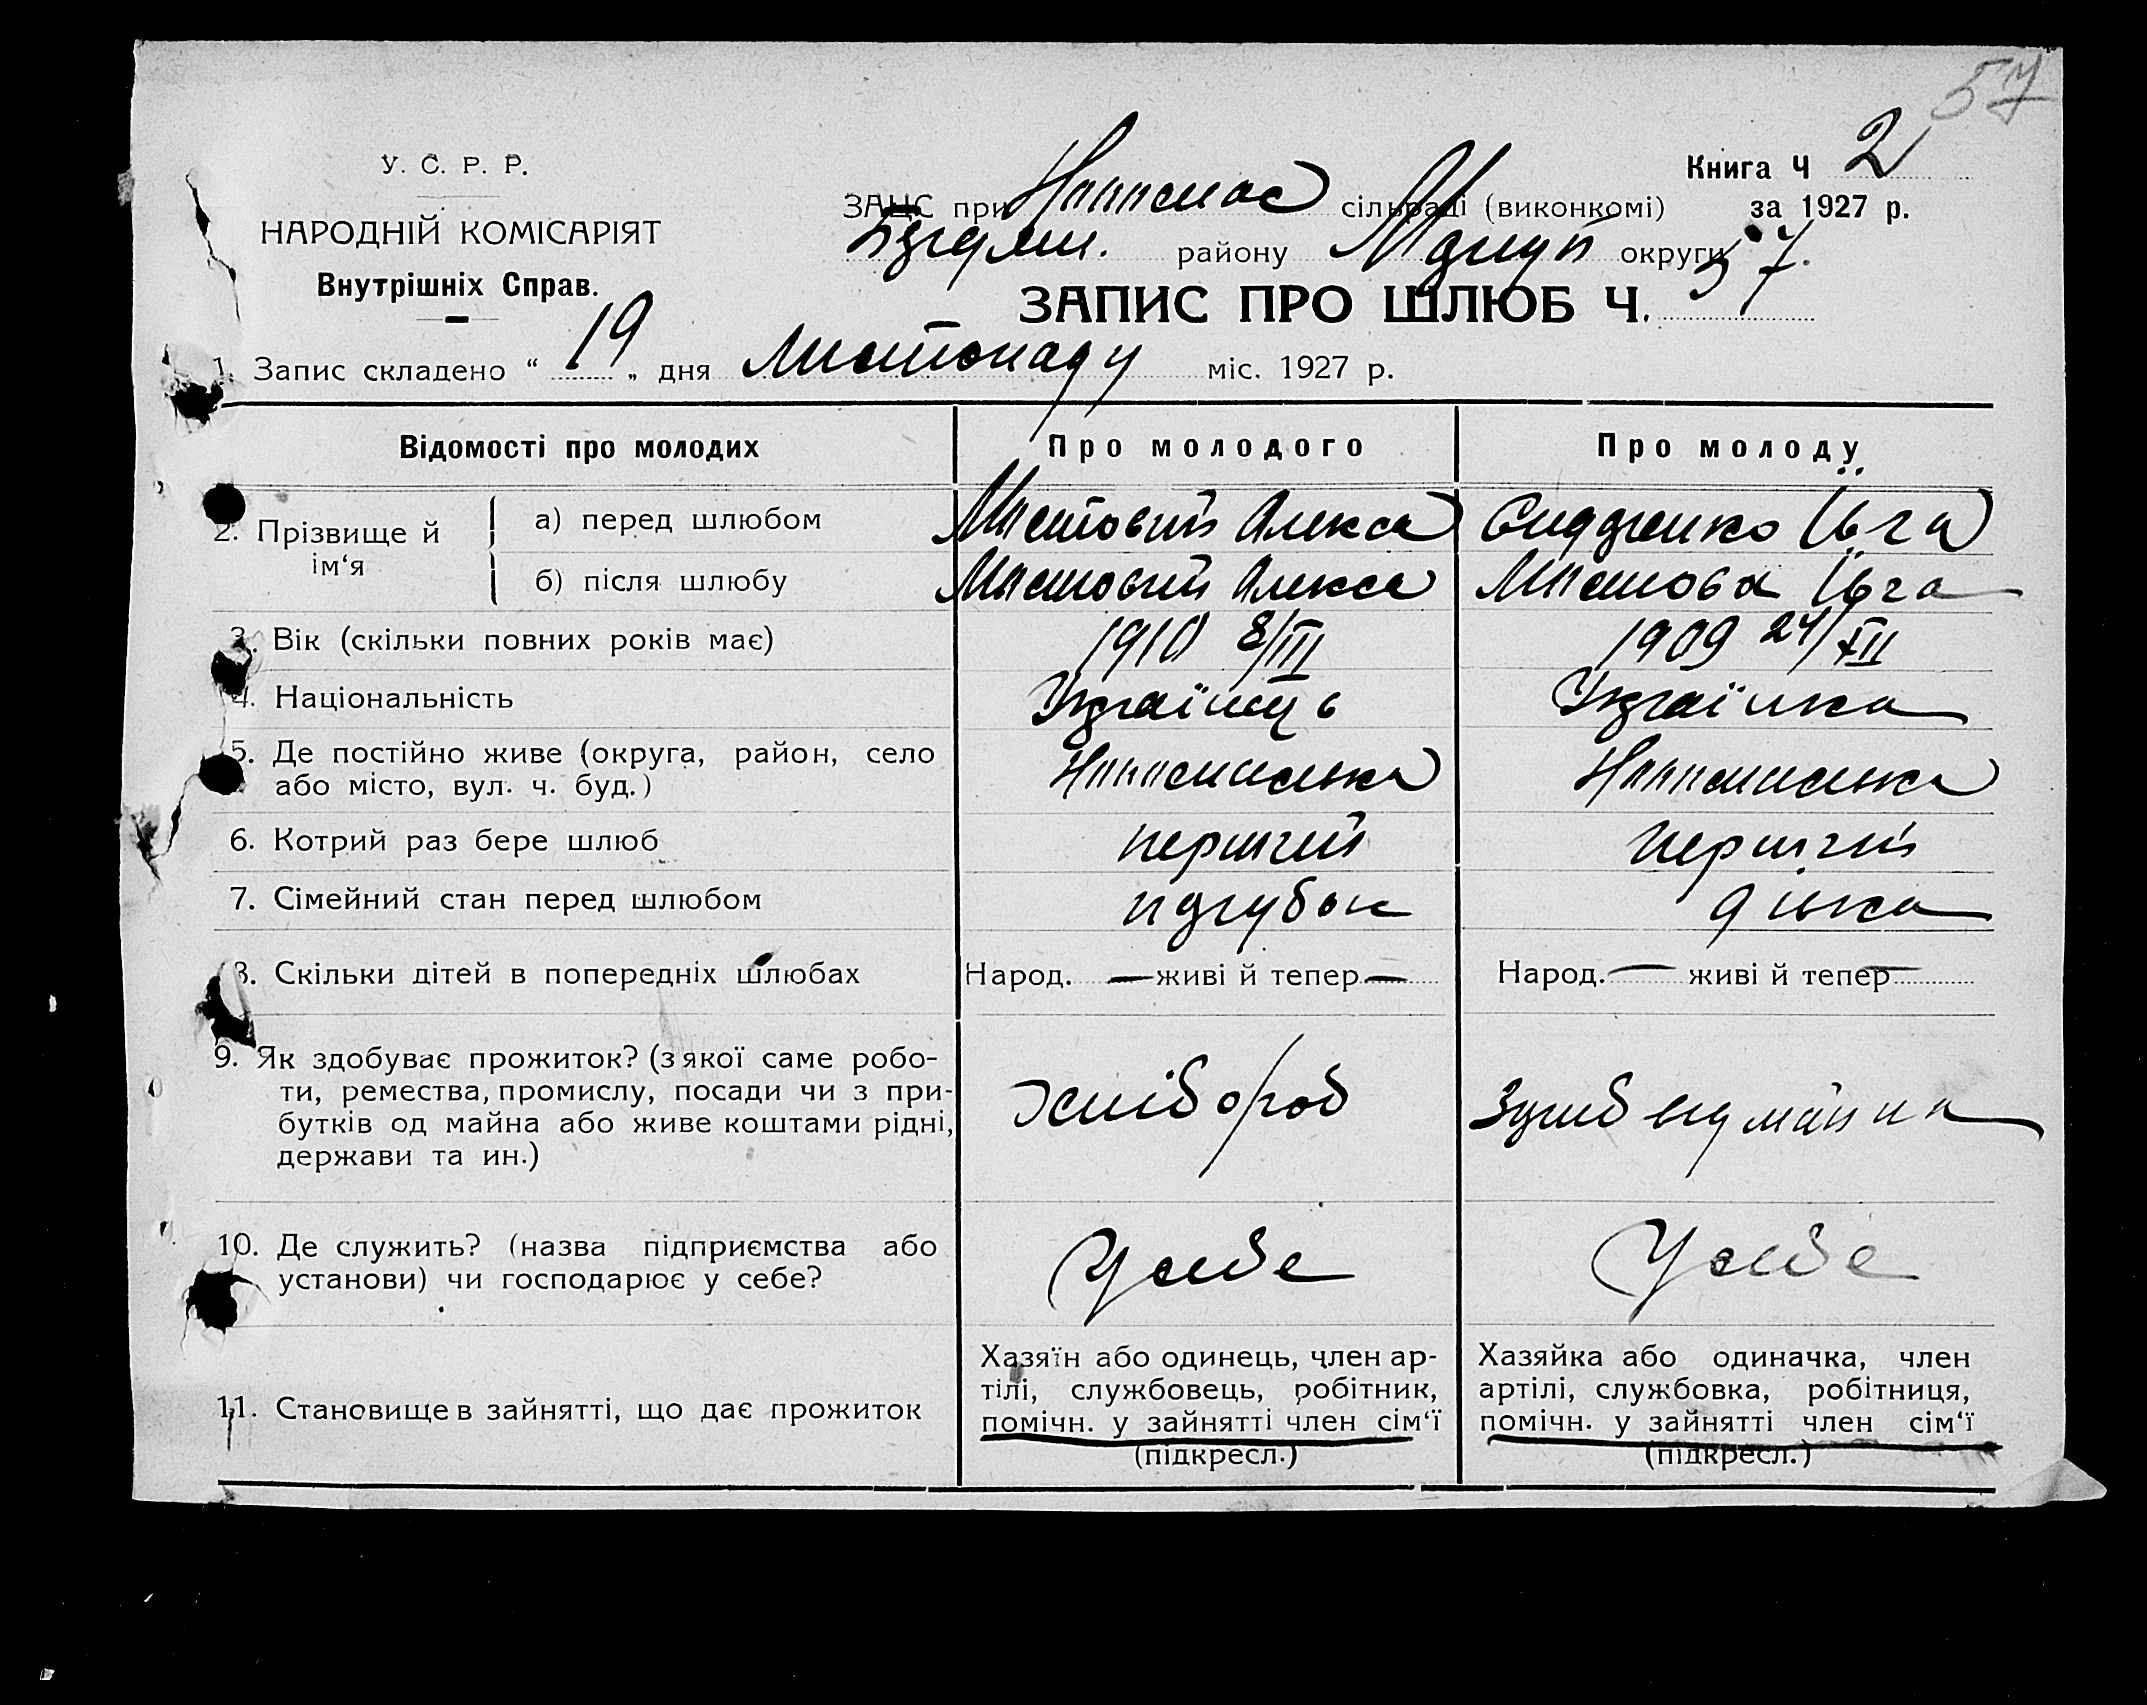 57
У. С. Р. Р.
НАРОДНІЙ КОМІСАРІЯТ
Внутрішніх Справ.
Книга Ч 2
ЗАЦС при сільраді (виконкомі) за 1927 р.
району округи
ЗАПИС ПРО ШЛЮБ Ч. 57.
1. Запис складено “ 19 „ дня Листопаду міс. 1927 р.
Відомості про молодих Про молодого Про молоду
2. Прізвище й ім‘я
а) перед шлюбом Листовий Олекса Івга
б) після шлюбу Листовий Олекса Листова Івга
3. Вік (скільки повних років має) 1910 8/III 1909 24/XII
4. Національність Українець Українка
5. Де постійно живе (округа, район, село
або місто, вул. ч. буд.)
6. Котрий раз бере шлюб перший перший
7. Сімейний стан перед шлюбом парубок дівка
8. Скільки дітей в попередніх шлюбах Народ. — живі й тепер — Народ. — живі й тепер —
9. Як здобуває прожиток? (з якої саме робо-
ти, ремества, промислу, посади чи з при-
бутків од майна або живе коштами рідні,
держави та ин.)
хлібороб
10. Де служить? (назва підприємства або
установи) чи господарює у себе?
У себе У себе
11. Становище в зайнятті, що дає прожиток
Хазяїн або одинець, член ар-
тілі, службовець, робітник,
помічн. у зайнятті член сім‘ї
(підкресл.)
Хазяйка або одиначка, член
артілі, службовка, робітниця,
помічн. у зайнятті член сім‘ї
(підкресл.)